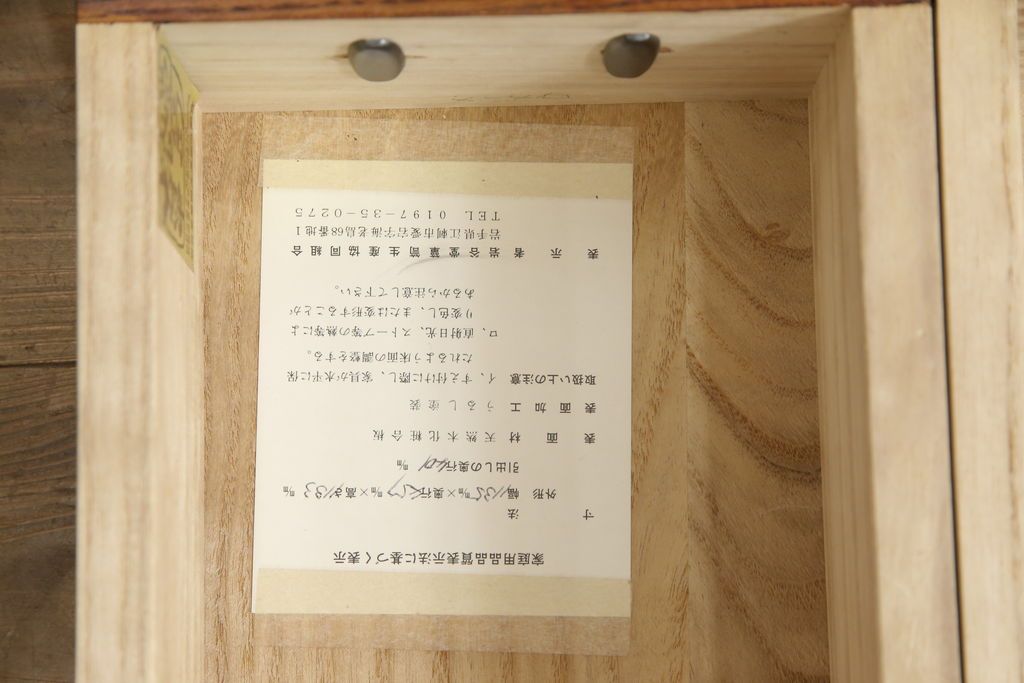 家庭用品品質表示法に基づく表示
寸法
外形 幅1135㎜×奥行 ㎜×高さ1133㎜
引出しの奥行 ㎜
表面材 天然木化粧合板
表面加工 うるし塗装
取扱い上の注意 イ、すえ付けに際し、家具が水平に保
たれるよう床面の調整をする。
ロ、直射日光、ストーブ等の熱等によ
り変色し、または変形することが
あるから注意して下さい。
表示者 岩谷堂簞笥生産協同組合
岩手県江刺市愛宕字海老島68番地1
TEL 0197-35-0275